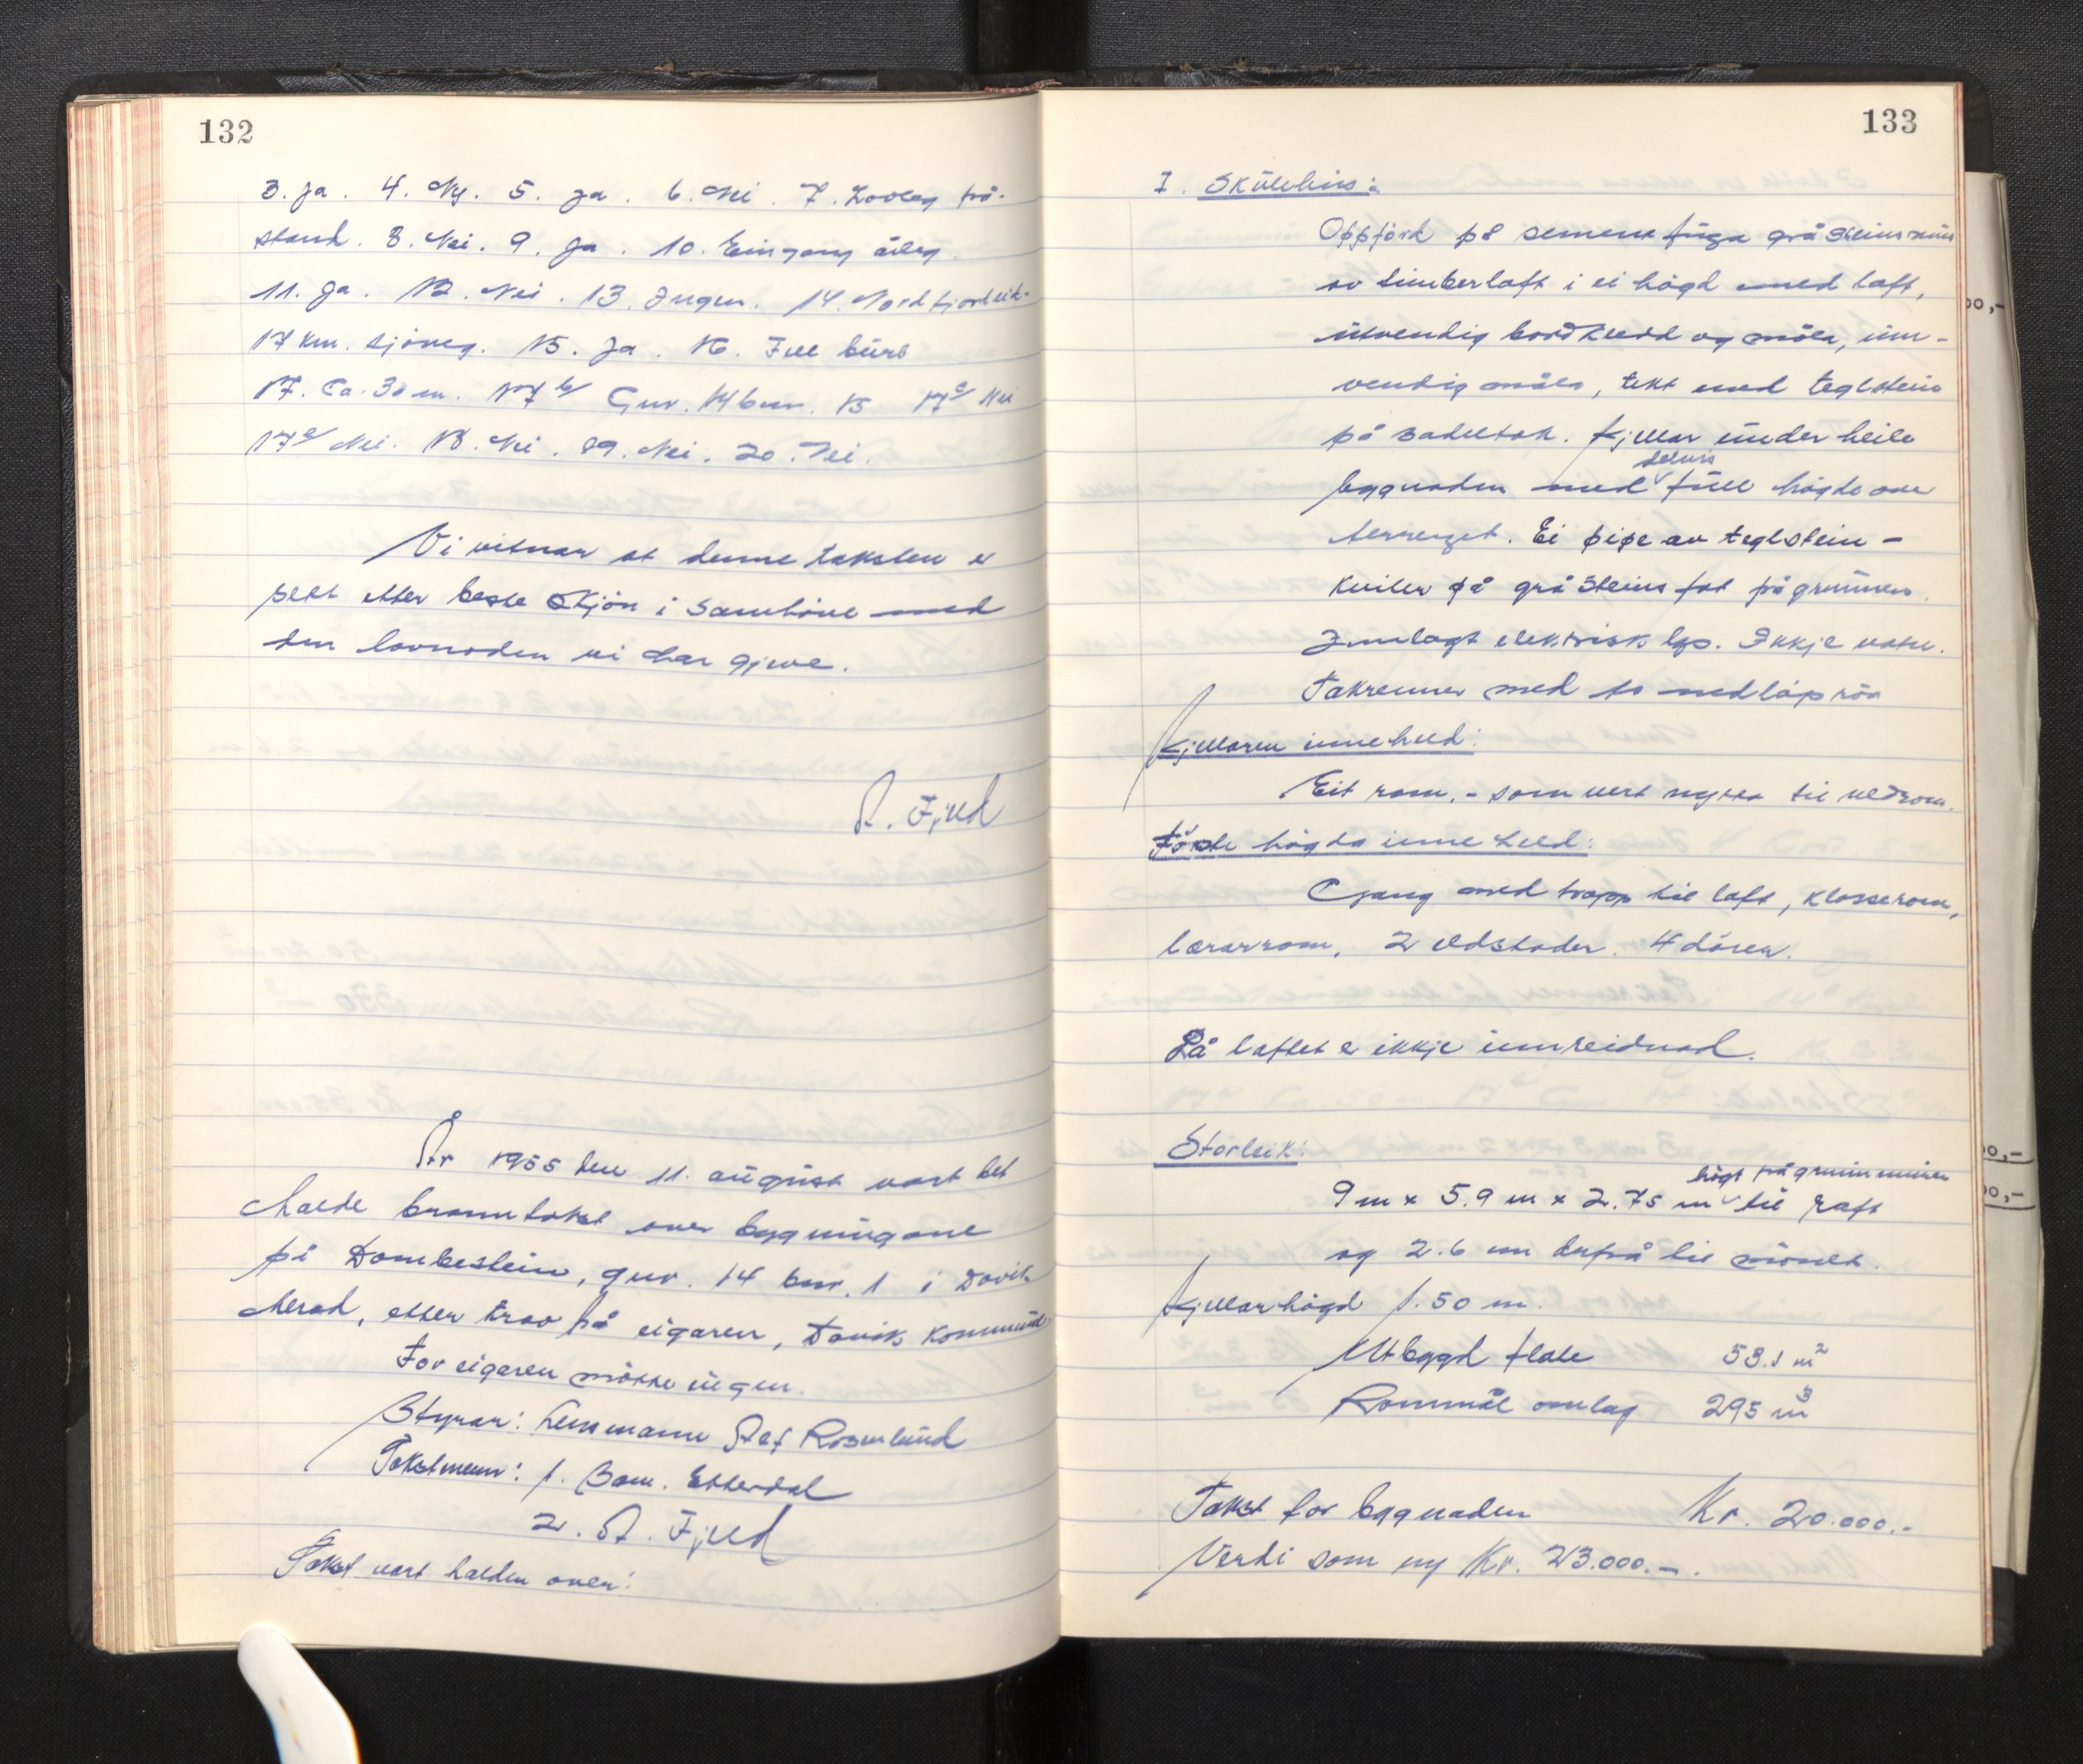 132
3. Ja. 4. Ny. 5. Ja. 6. Nei. 7. Lovleg frå-
stand. 8. Nei. 9. Ja. 10. Eingong årleg.
11. Ja. 12. Nei. 13. Ingen. 14. Nordfjordeid-
17 km. sjöveg. 15. Ja. 16. Til burs
17. Ca. 30 m. 17 b/ Gnr. 14 bnr. 15 17 c/ Nei
17 Nei. 18. Nei. 19. Nei. 20. Nei.
Vi vitnar at denne taksten er
sett etter beste skjön i samhöve med
den lovnaden vi har gjeve.
A. Fjeld
År 1955 den 11. august vart det
halde branntakst over bygningane
på Dombestein, gnr. 14 bnr. 1 i Davik
herad, etter krav frå eigaren, Davik kommune.
For eigaren mötte ingen.
Styrar: Lensmann Rosenlund
Takstmenn: 1. Etterdal
2. A. Fjeld
Takst vart halden over:
133
I. Skulehus:
Oppförd på sement fuga gråsteinsmur
av timberlaft i ei högd med laft,
utvendig bordkledd og måla, inn-
vendig måla, tekt med teglstein
på sadeltak. Kjellar under heile
bygnaden med delvis full högde over
terrenget. Ei pipe av teglstein -
kviler på gråsteins fot frå grunnen.
Innlagt elektrisk lys. Ikkje vatn.
Takrenner med to nedlöpsrör
Kjellaren inneheld:
Eit rom, - som vert nytta til vedrom.
Förste högda inneheld:
Gang med trapp til loft, klasserom,
lærarrom, 2 eldstader. 4 dörer.
På loftet er ikkje innreidnad.
Storleik:
9 m x 5.9 m x 2.75 m högt frå grunnmuren til raft
og 2.6 m derfrå til mönet.
Kjellarhögd 1.50 m.
Utbygd flate 53.1 m²
Rommål omlag 295 m³
Takst for bygnaden Kr. 20.000.-
Verdi som ny Kr. 23.000.-.
00,-
00,-
00,-